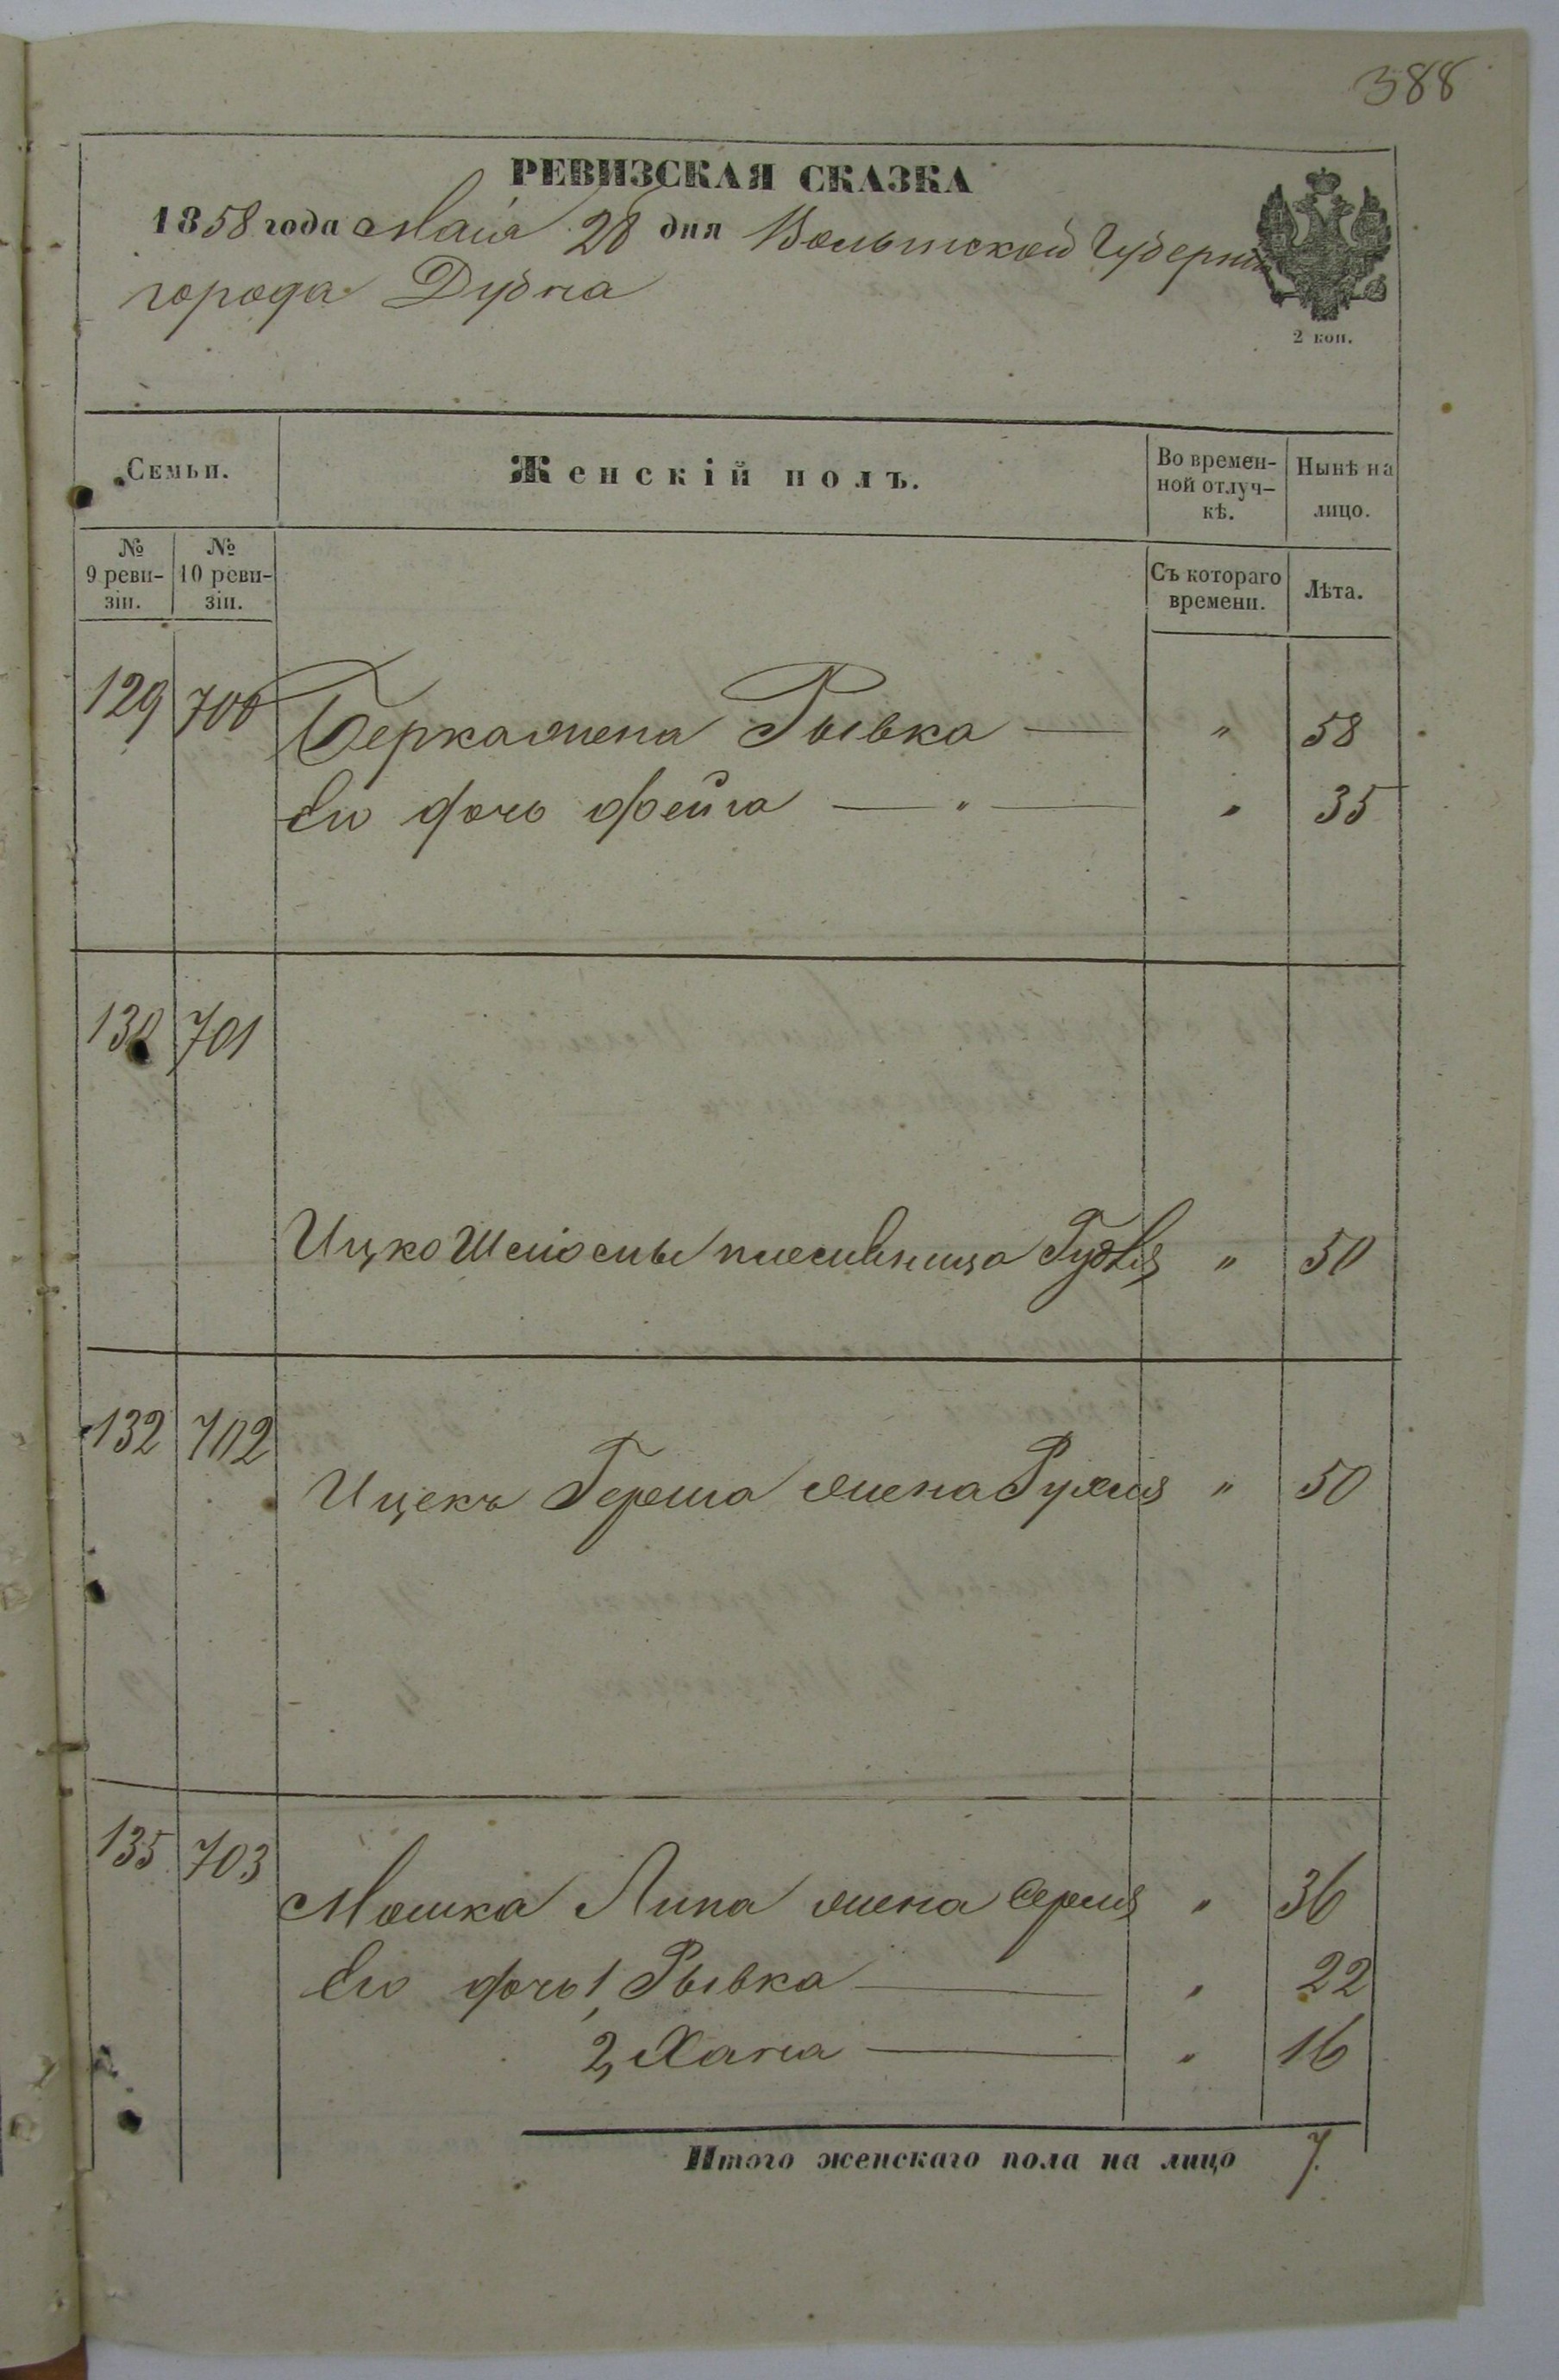 388
РЕВИЗСКАЯ СКАЗКА
1858 года Маія 28 дня Волынской Губерніи
города Дубна
2 коп.
Семьи. Женскій полъ. Во времен- Нынѣ на
ной отлуч- лицо.
кѣ.
№ № Съ котораго Лѣта.
9 реви- 10 реви- времени.
зіи. зіи.
129 700 Берка жена Рывка — " 58
Его дочь Фейга — " — " 35
130 701
Ицко племенница " 50
132 702
Ицекъ Герша жена Рухля " 50
135 703
Мошка Липа жена " 36
Его дочь 1, Рывка — " 22
2, Хана — " 16
Итого женскаго пола на лицо 7.